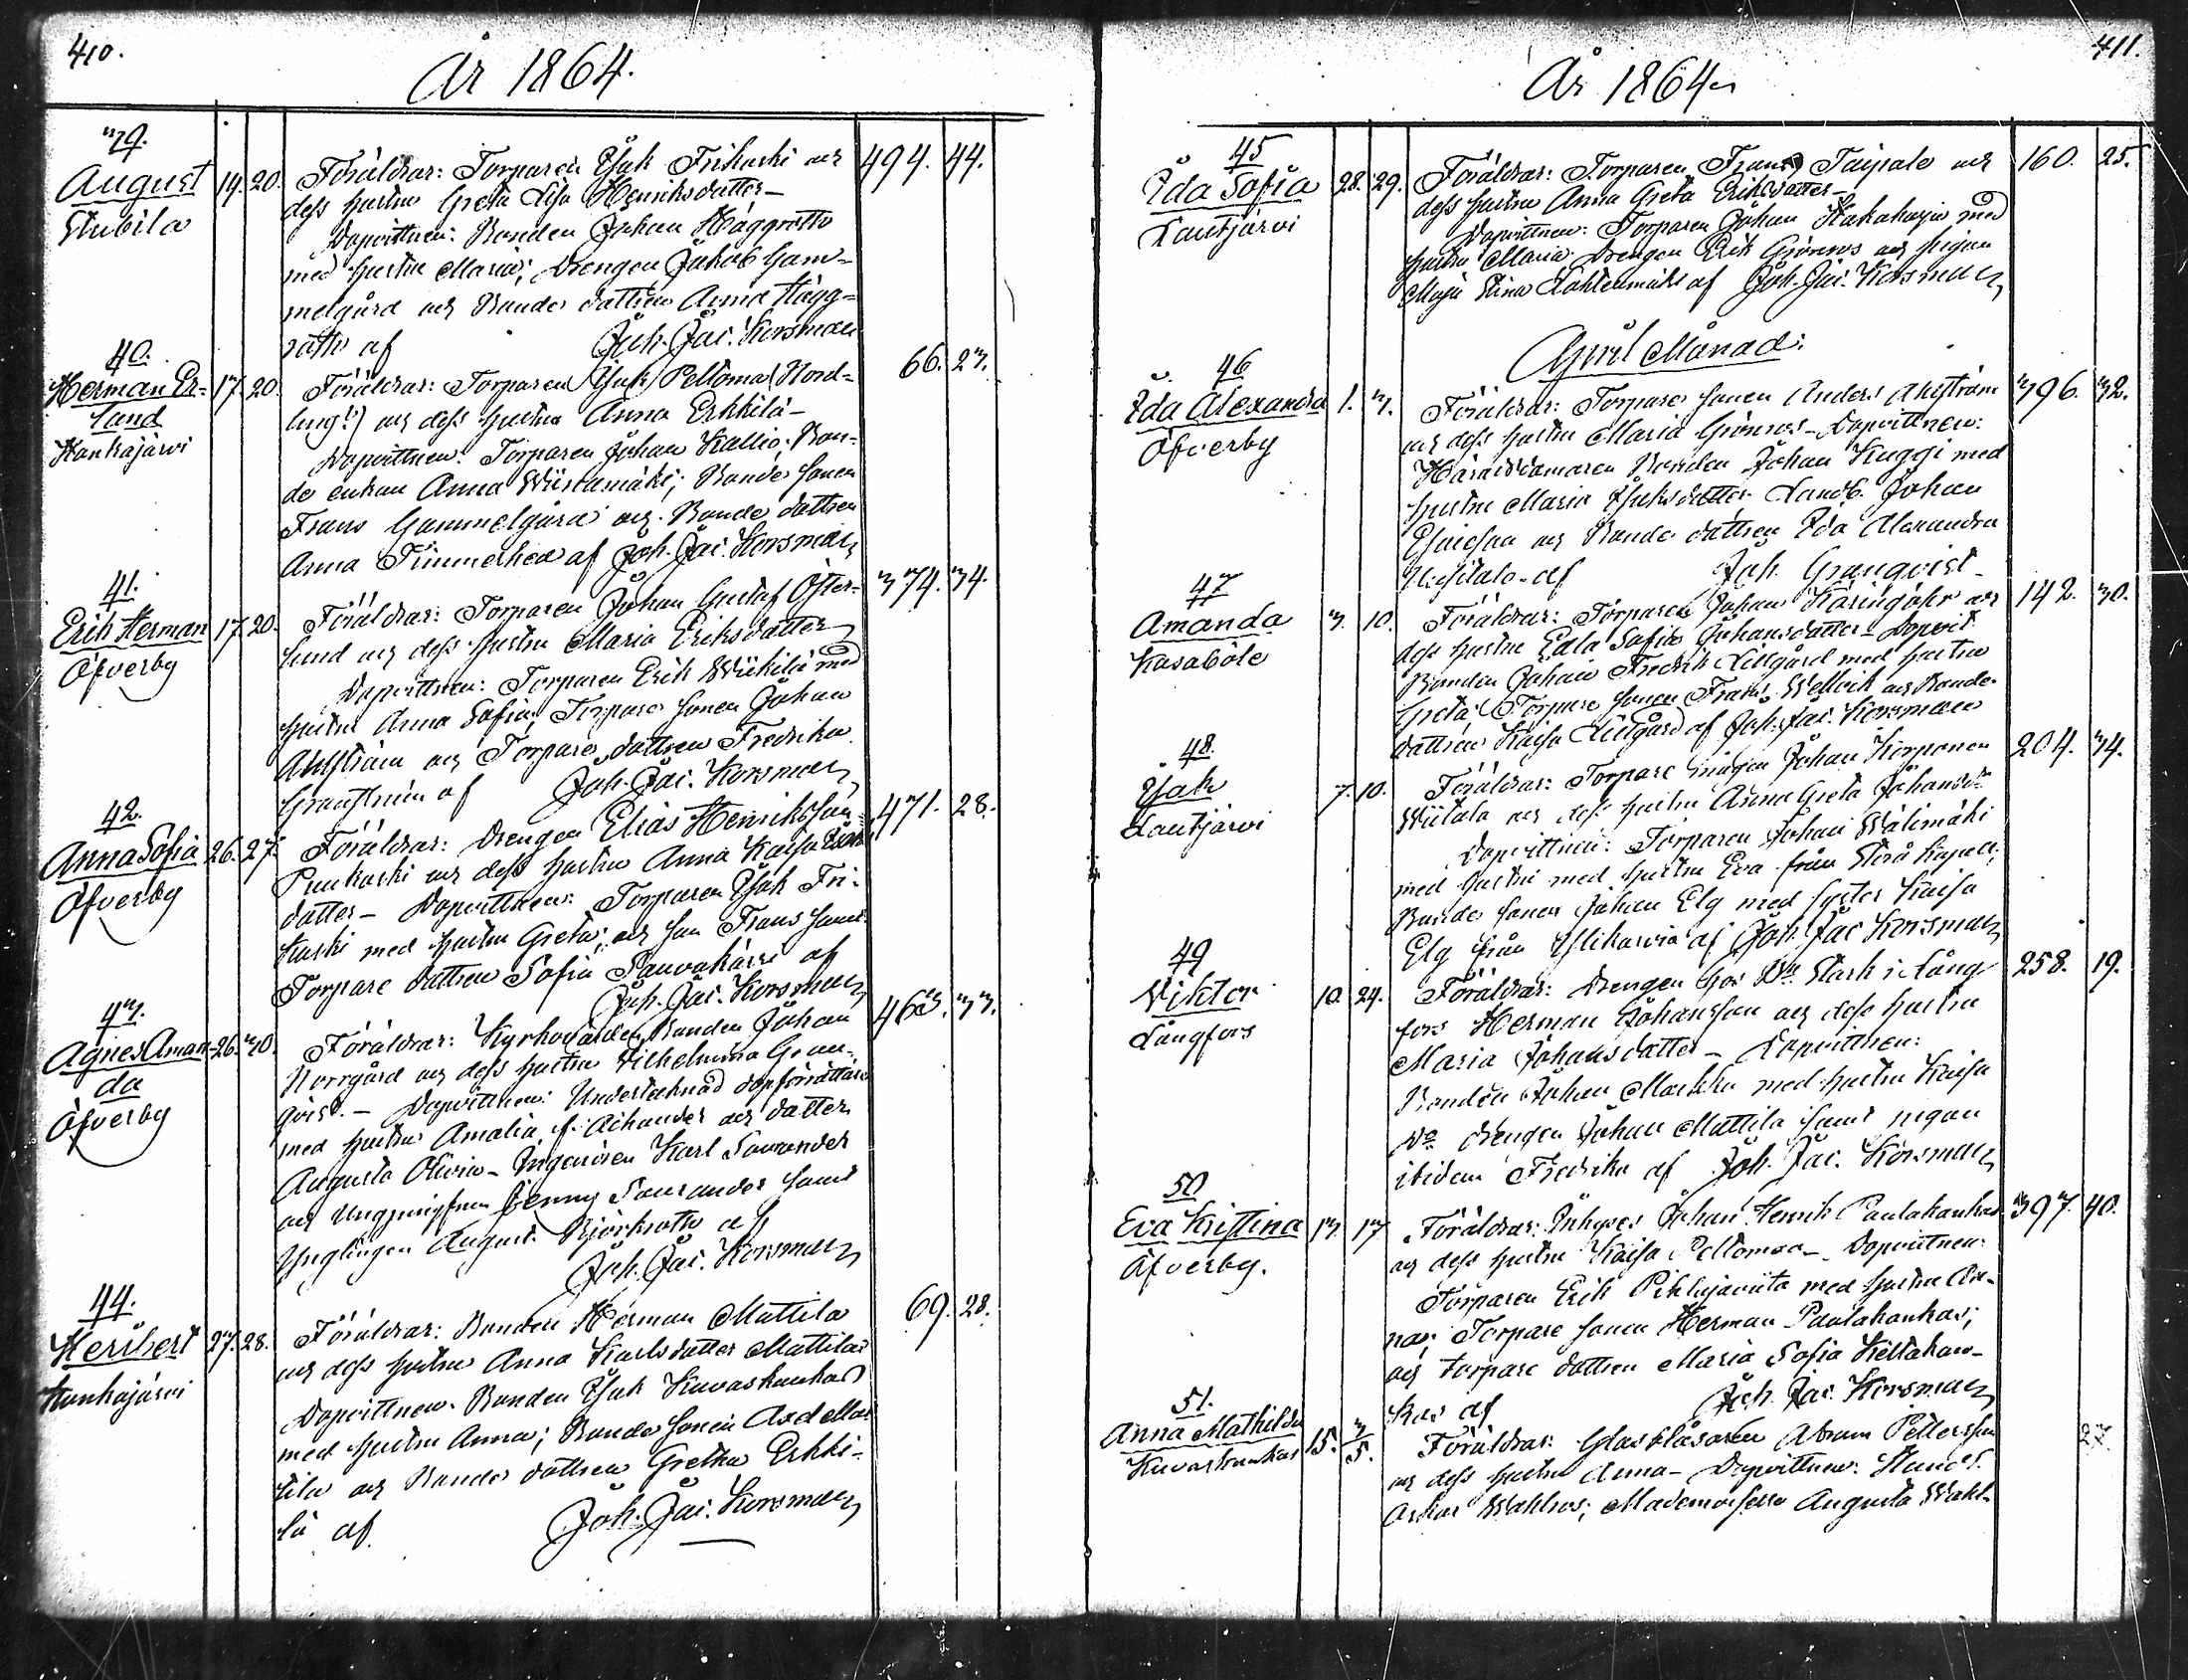 410.
År 1864.
39.
August
Stubila
19. 20.
Föräldrar: Torparen Isak Frikaski och
dess hustru Greta Lisa Henriksdotter –
Dopvittnen: Bonden Johan Häggroth
med hustru Maria; Drengen Jakob Gam-
melgård och Bonde dottren Anna Hägg-
roth af Joh. Jac. Korsman
494. 44.
40.
Herman Er-
land
Kankajärvi
17. 20.
Föräldrar: Torparen Isak Peltomaa (Nord-
ling?) och dess hustru Anna Erkkilä –
Dopvittnen: Torparen Johan Kallio; Bon-
de enkan Anna Wiinamäki; Bonde sonen
Frans Gammelgård och Bonde dottren
Anna Timmerhed af Joh. Jac. Korsman
66. 23.
41.
Erik Herman
Öfverby
17. 20.
Föräldrar: Torparen Johan Gustaf Öster-
lund och dess hustru Maria Eriksdotter
Dopvittnen: Torparen Erik Wiikilä med
hustru Anna Sofia; Torpare sonen Johan
Ahlström och Torpare dottren Fredrika
Granström af Joh. Jac. Korsman
374. 34.
42.
Anna Sofia
Öfverby
26. 27.
Föräldrar: Drengen Elias Henriksson
Punkaski och dess hustru Anna Kaisa
dotter – Dopvittnen: Torparen Isak Fri-
kaski med hustru Greta; och son Frans samt
Torpare dottren Sofia af
Joh. Jac. Korsman
471. 28.
43.
Agnes Aman-
da
Öfverby
26. 30.
Föräldrar: Kyrkovärden Bonden Johan
Norrgård och dess hustru Wilhelmina Gran-
qvist. – Dopvittnen: Undertecknad dopförrättare
med hustru Amalia f. Achander och dotter
Augusta Olivia – Ingeniören Karl Saurander
och Ungpigan Jenny Saurander samt
Ynglingen August Björkroth af
Joh. Jac. Korsman
463. 33.
44.
Heribert
Kankajärvi
27. 28.
Föräldrar: Bonden Herman Mattila
och dess hustru Anna Karlsdotter Mattila
Dopvittnen: Bonden Isak Kuvaskankas
med hustru Anna; Bonde sonen Axel Mat-
tila och Bonde dottren Gretha Erkki-
lä af Joh. Jac. Korsman
69. 28.
411.
År 1864
45
Ida Sofia
Lautjärvi
28. 29.
Föräldrar: Torparen Frans Taipale och
dess hustru Anna Greta Eriksdotter –
Dopvittnen: Torparen Johan med
hustru Maria Drengen Erik Grönroos och pigan
Maja Stina Lähteenmäki af Joh. Jac. Korsman
160. 25.
April Månad:
46
Ida Alexandra
Öfverby
1. 3.
Föräldrar: Torpare sonen Anders Ahlström
och dess hustru Maria Grönroos – Dopvittnen:
Häradsdomaren Bonden Johan Kuggi med
hustru Maria Isaksdotter Landb. Johan
Esaiesson och Bonde dottren Ida Alexandra
Uusitalo af Joh. Granqvist
396. 32.
47
Amanda
Kasaböle
3. 10.
Föräldrar: Torparen Johan och
dess hustru Edla Sofia Johansdotter – Dopvit.
Bonden Johan Fredrik Lillgård med hustru
Greta; Torpare sonen Frans Wellvik och Bonde
dottren Kaisa Lillgård af Joh. Jac. Korsman
142. 30.
48.
Isak
Lautjärvi
7. 10.
Föräldrar: Torpare mågen Johan Korponen
Wiitala och dess hustru Anna Greta Johansdr.
Dopvittnen: Torparen Johan Wälimäki
med hustru med hustru Eva från Storå Kapell;
Bonde sonen Johan Elg med syster Kaisa
Elg från af Joh. Jac Korsman
204. 34.
49
Viktor
Långfors
10. 24.
Föräldrar: Drengen hos Stark i Lång-
fors Herman Johansson och dess hustru
Maria Johansdotter – Dopvittnen:
Bonden Johan Markku med hustru Kaisa
Do drengen Johan Mattila samt pigan
ibidem Fredrika af Joh. Jac. Korsman
258. 19.
50
Eva Kristina
Öfverby.
13. 17.
Föräldrar: Inhyses Johan Henrik Paulakankas
och dess hustru Kaisa Peltomaa – Dopvittnen:
Torparen Erik Pihlajaviita med hustru An-
na; Torpare sonen Herman Paulakankas;
och torpare dottren Maria Sofia Kiettakan-
kas af Joh. Jac. Korsman
397. 40.
51.
Anna Mathilda
Kuvaskankas
15. 3/5.
Föräldrar: Glasblåsaren Abram Pettersson
och dess hustru Anna – Dopvittnen: Hand.
Oskar Wahlroos; Mademoiselle Augusta Wahl-
27.